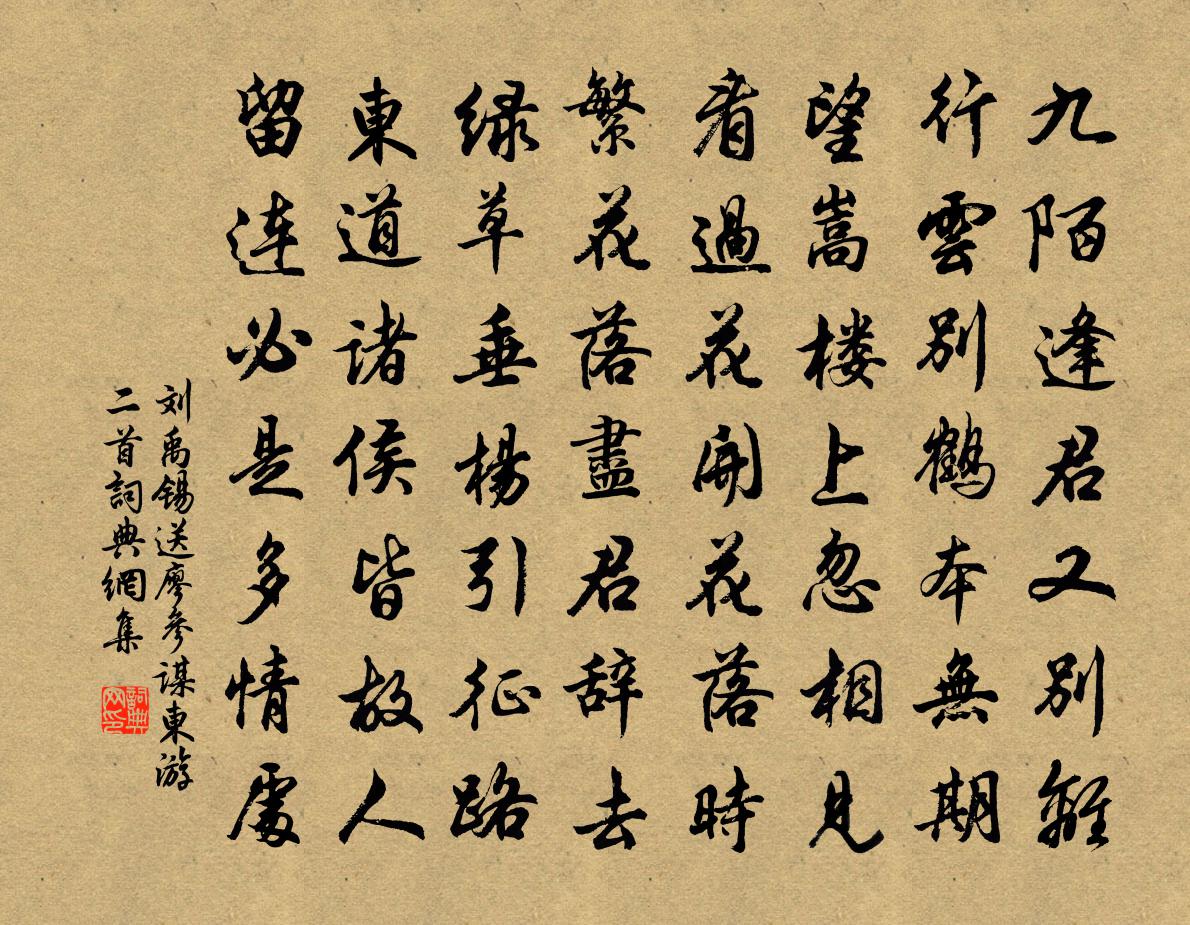 九陌逢君又別離
行雲別鶴本無期
望嵩楼上忽相見
看過花開花落時
繁花落盡君辞去
绿草垂楊引征路
東道諸侯皆故人
留连必是多情處
刘禹锡送廖参謀東游
二首詞典網集
詞典网印